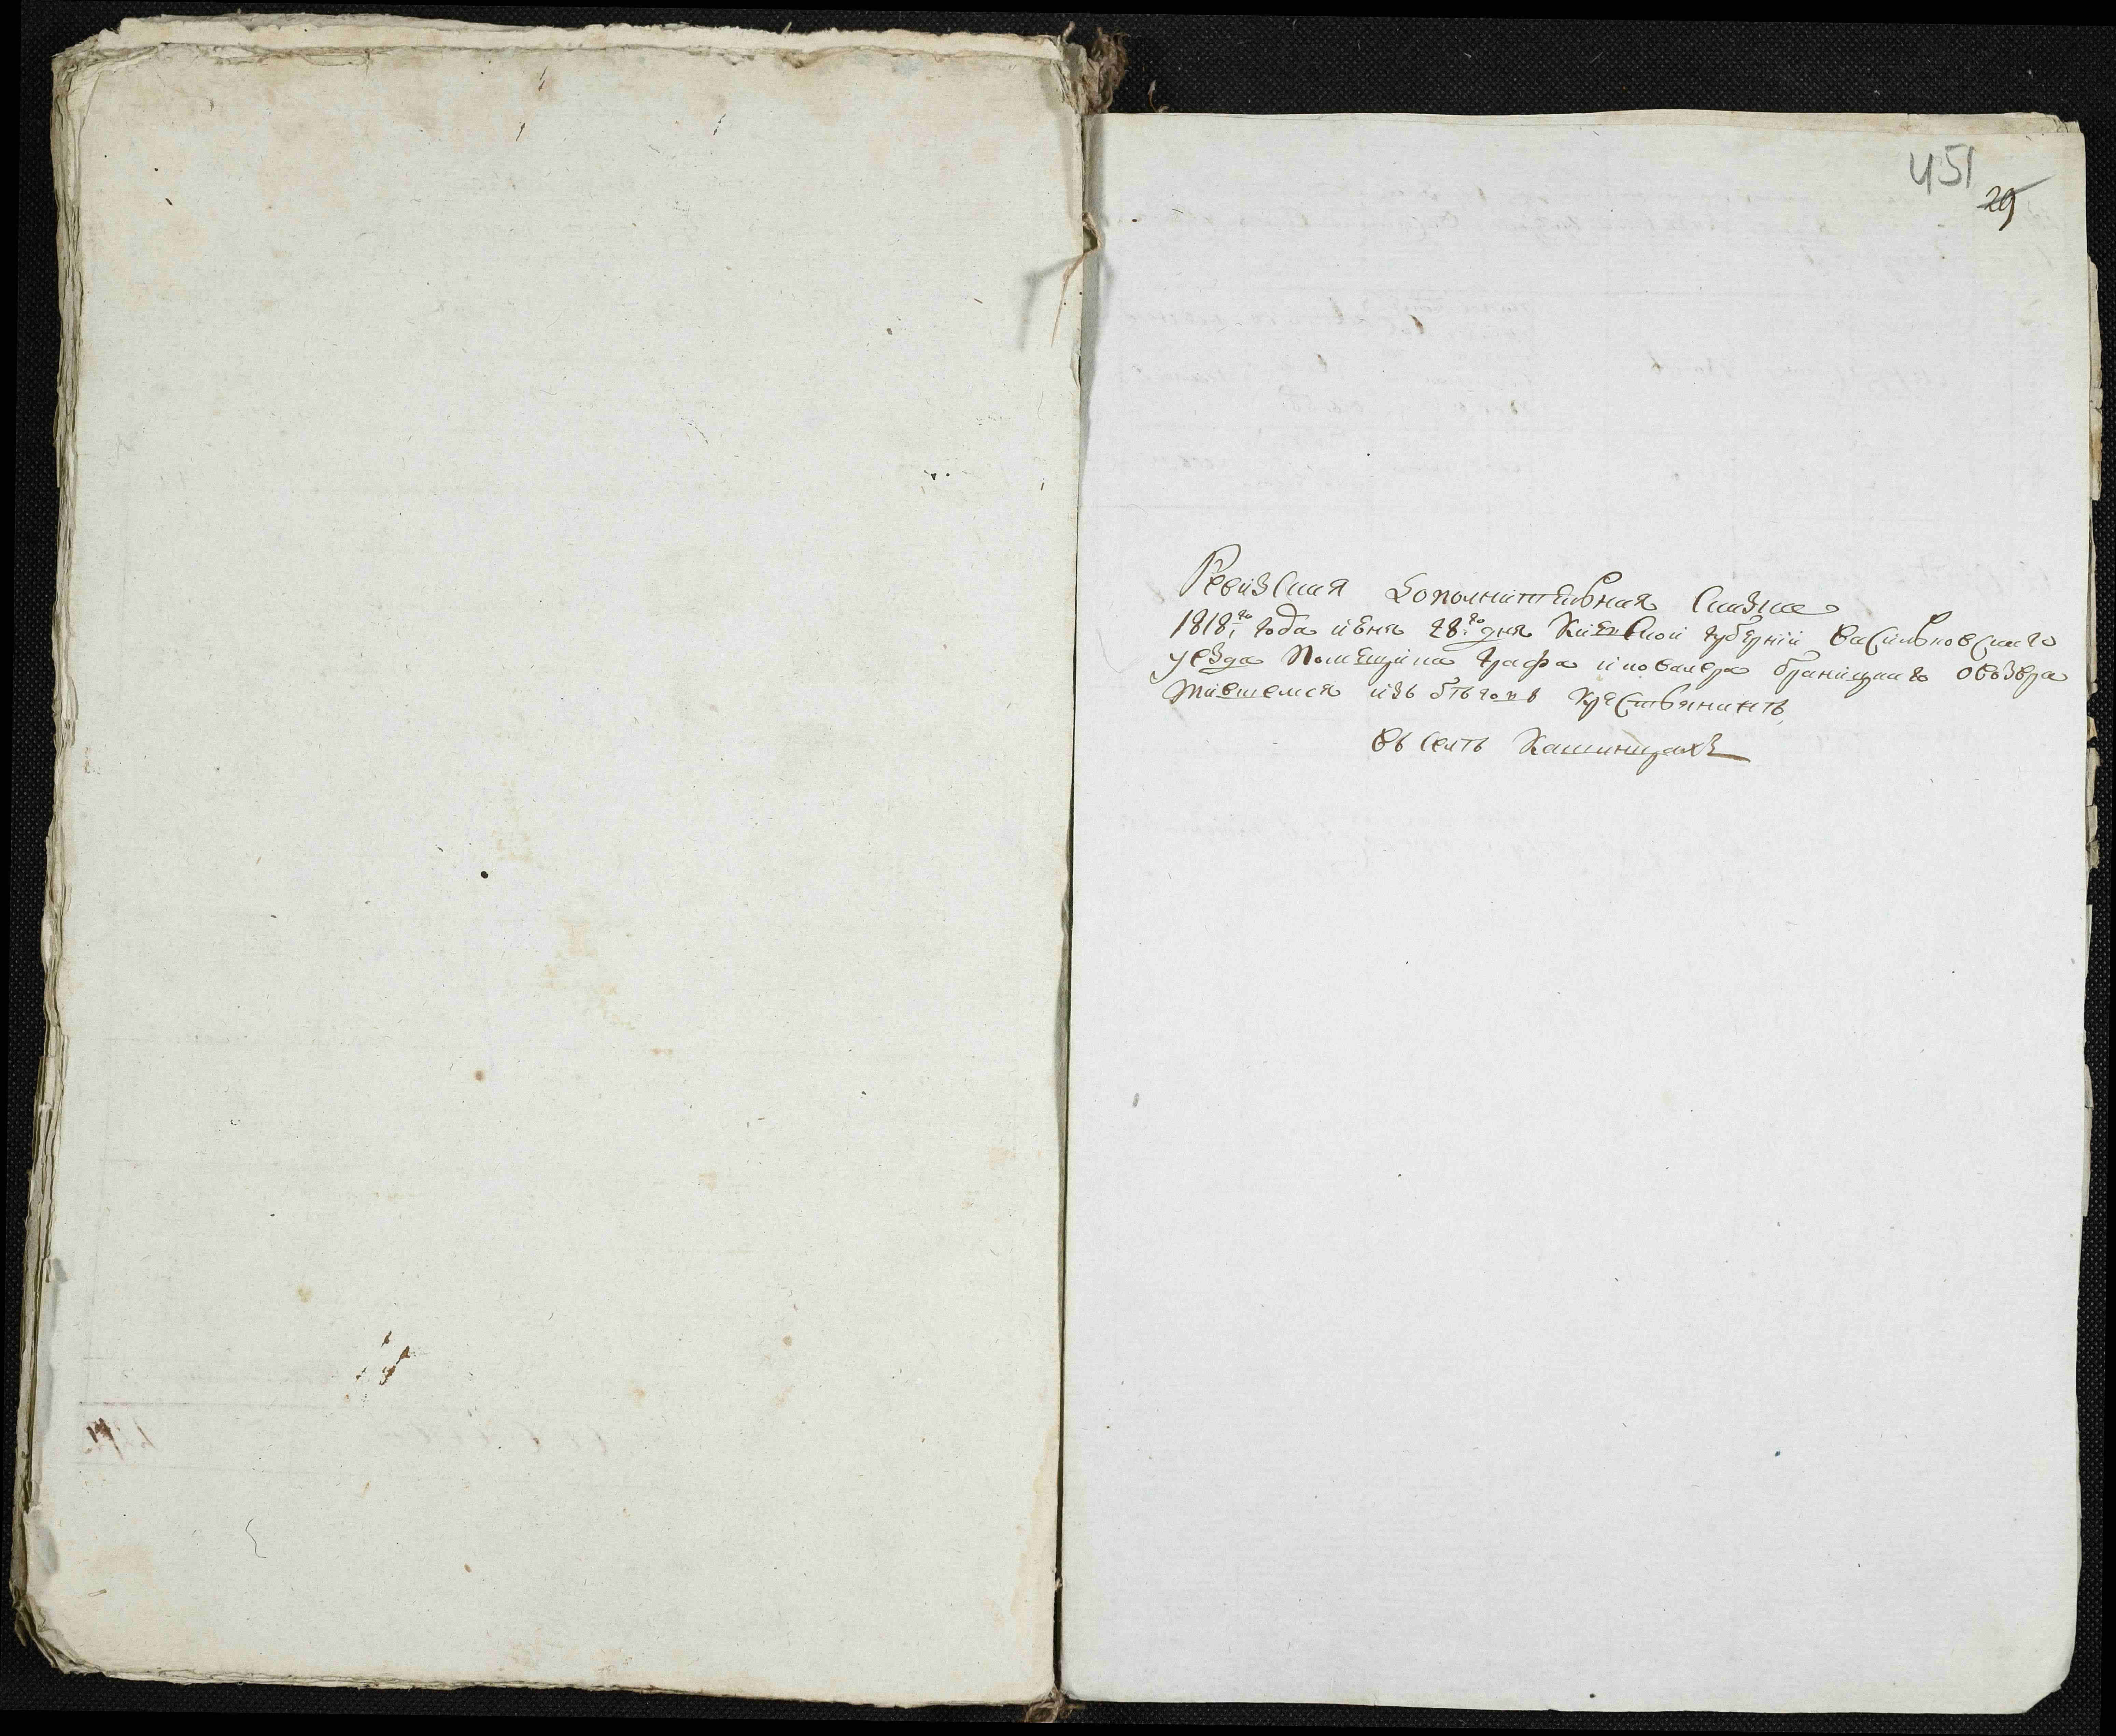 451
29
Ревизская дополнительная сказка
1818го года июня 28го дня Киевской губернии васильковского
уезда Помещика графа и ковалера браницкаго о возвра
тившемся изъ бѣговъ крестьянинѣ
въ селѣ